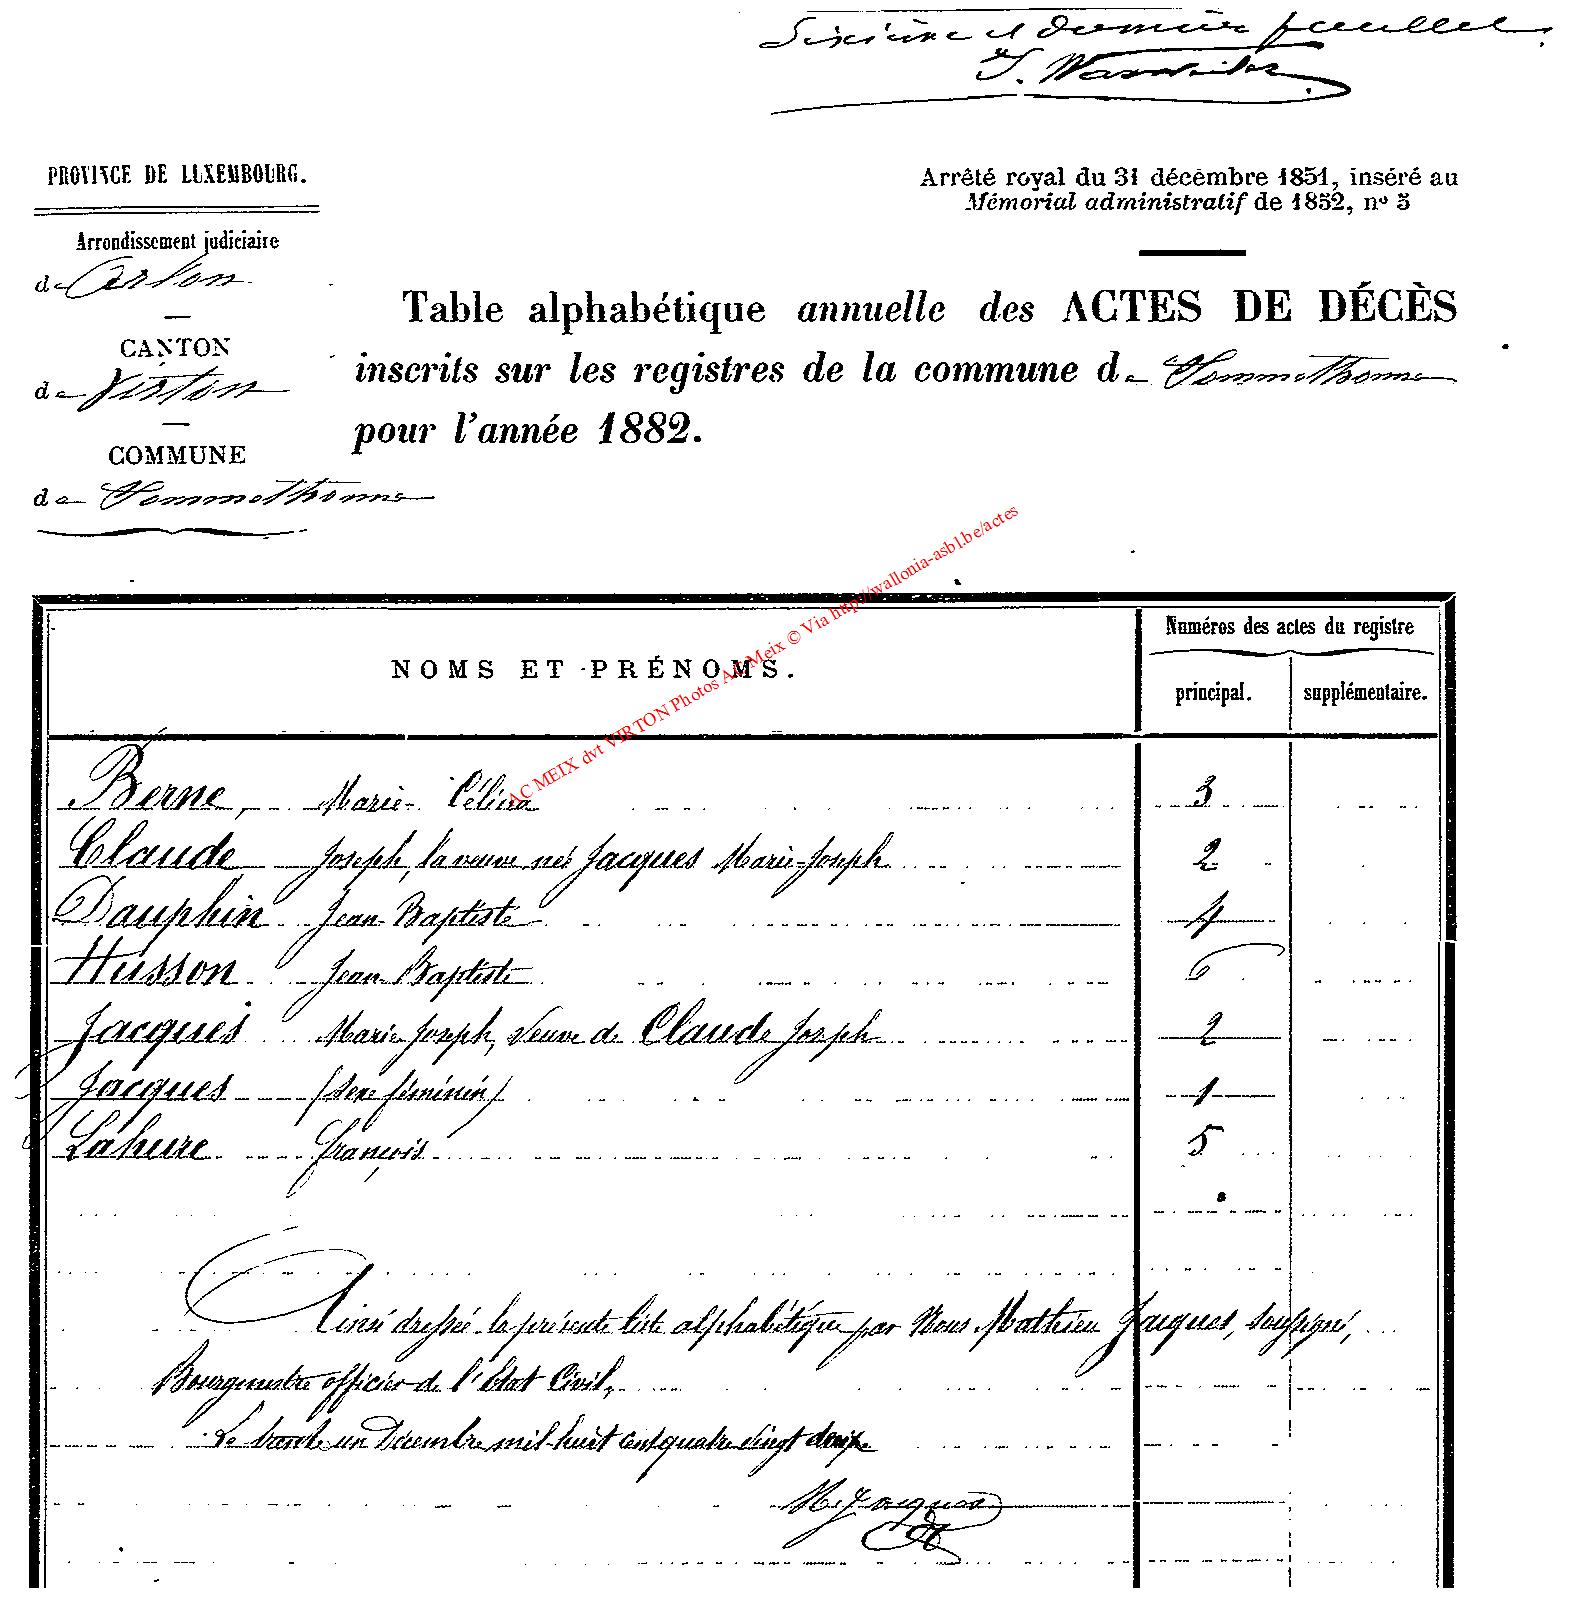 Sixième et dernier feuillet.
PROVINCE DE LUXEMBOURG.
Arrêté royal du 31 décembre 1851, inséré au
Mémorial administratif de 1852, nº 5
Arrondissement judiciaire
de Arlon
CANTON
de Virton
COMMUNE
de Sommethonne
Table alphabétique annuelle des ACTES DE DÉCÈS
inscrits sur les registres de la commune de Sommethonne
pour l'année 1882.
NOMS ET PRÉNOMS.
Numéros des actes du registre
principal. supplémentaire.
AC MEIX dvt VIRTON Photos AC Meix © Via http://wallonia-asbl.be/actes
Berne, Marie-Célina 3
Claude Joseph, la veuve née Jacques Marie-Joseph 2
Dauphin Jean Baptiste 4
Husson Jean Baptiste 6
Jacques Marie Joseph, veuve de Claude Joseph 2
Jacques (sexe féminin) 1
Lahure François 5
Ainsi dressée la présente liste alphabétique par Nous Mathieu Jacques, soussigné,
Bourgmestre officier de l'État Civil,
Le trente un Décembre mil huit cent quatre vingt deux
M. Jacques